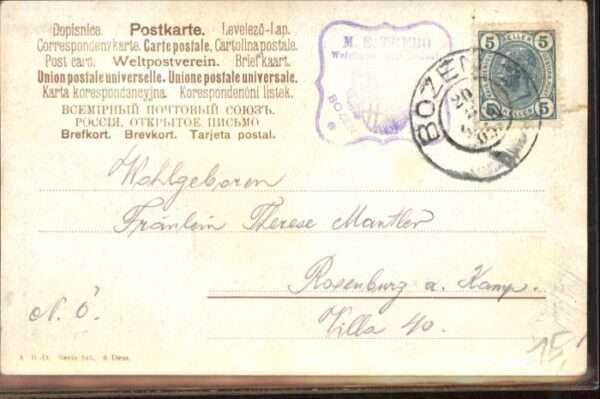 Dopisnica. Postkarte. Levelező-Lap.
Correspondenzkarte. Carte postale. Cartolina postale.
Post card. Weltpostverein. Briefkaart.
Union postale universelle. Unione postale universale.
Karta korespondencyjna. Korespondenční lístek.
ВСЕМІРНЫЙ ПОЧТОВЫЙ СОЮЗЪ.
РОССІЯ. ОТКРЫТОЕ ПИСЬМО
Brefkort. Brevkort. Tarjeta postal.
M. E.
BOZEN
5 5
5 5
BOZEN
Wohlgeboren
Fräulein Therese Mantler
Rosenburg a. Kamp.
N. Ö.
Villa 40.
15,